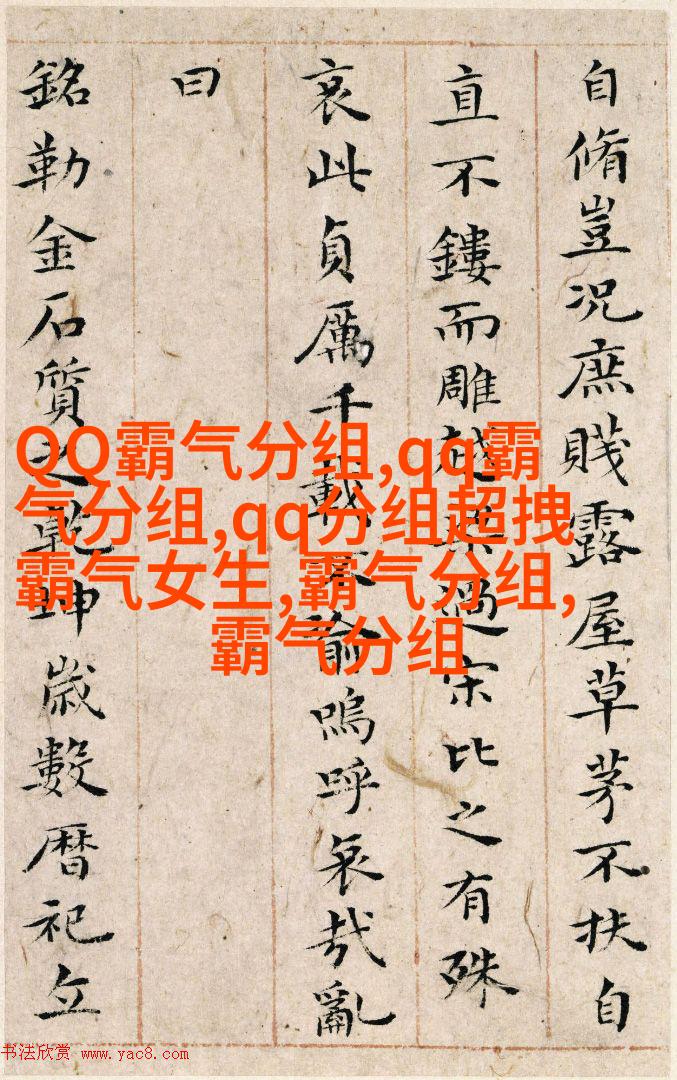 自脩豈況庶賤露屋草茅不扶自
直不鏤而雕越梁過宋比之有殊
哀此貞厲千載不渝嗚呼哀哉亂
曰
銘勒金石質之乾坤歲數暦祀立
QQ霸气分组,qq霸
气分组,qq分组超拽
霸气女生,霸气分组,
霸气分组
书法欣赏 www.yac8.com